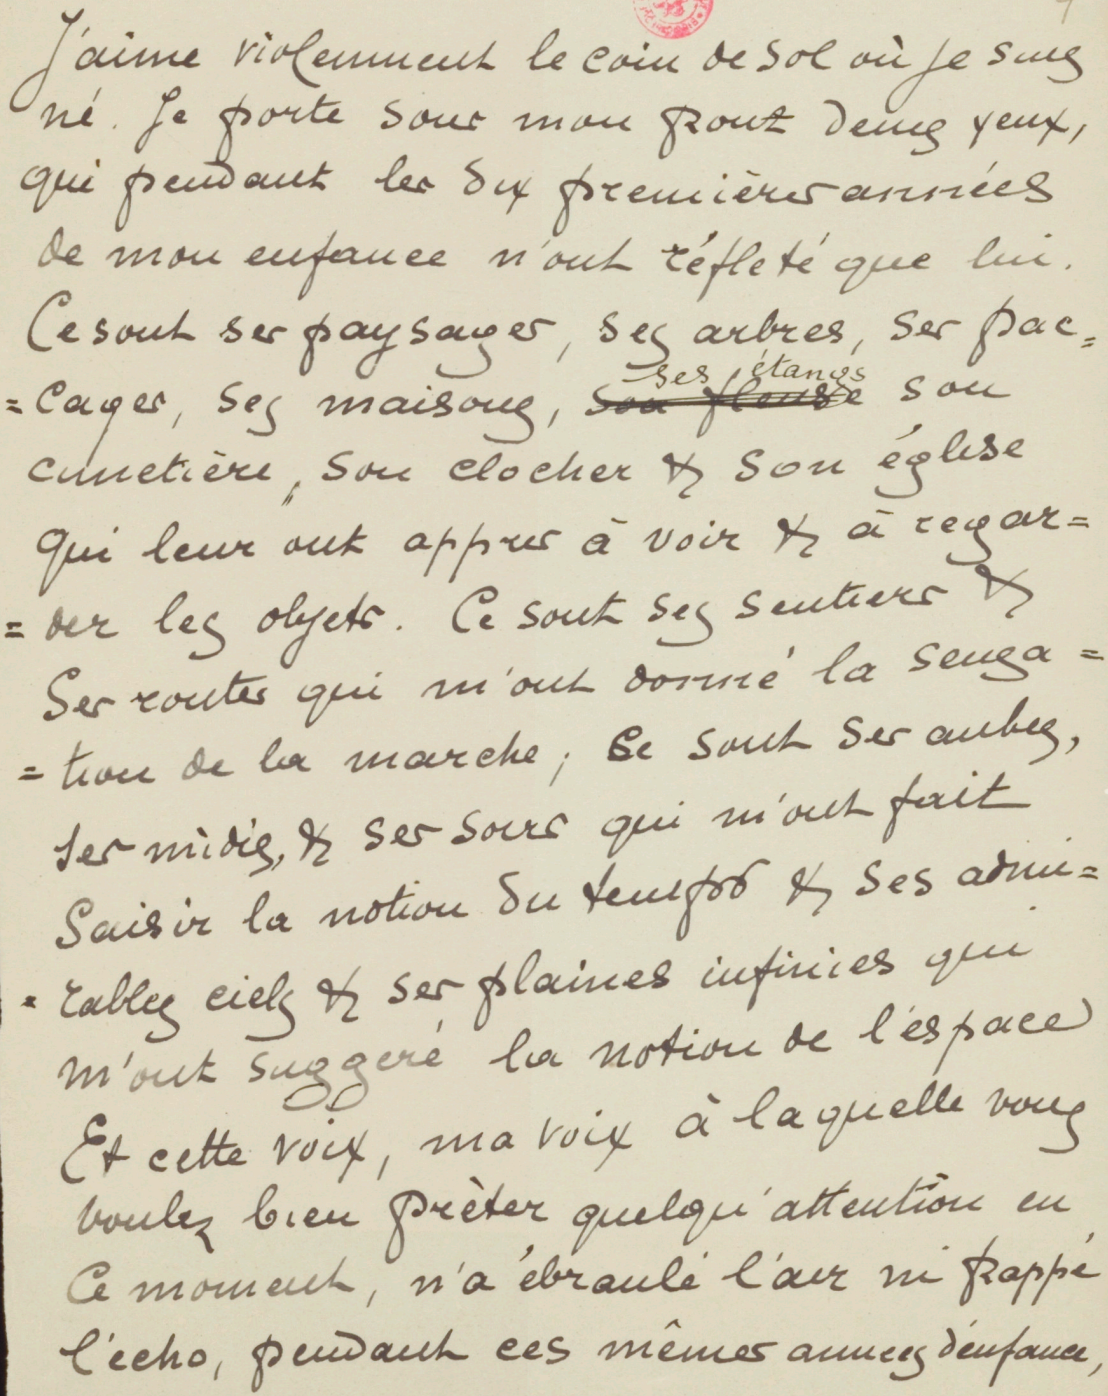 J'aime violemment le coin de sol où je suis
né. Je porte sous mon front deux yeux,
qui pendant les dix premières années
de mon enfance n'ont réfleté que lui.
Ce sont ses paysages, ses arbres, ses pac=
ses étangs
=cages, ses maisons, son fleuve son
cimetière, son clocher & son église
qui leur ont appris à voir & à regar=
=der les objets. Ce sont ses sentiers &
ses routes qui m'ont donné la sensa=
=tion de la marche; ce sont ses aubes,
ses midis, & ses soirs qui m'ont fait
saisir la notion du temps & ses admi=
=rables ciels & ses plaines infinies qui
m'ont suggéré la notion de l'espace
Et cette voix, ma voix à laquelle vous
voulez bien prêter quelqu'attention en
ce moment, n'a ébranlé l'air ni frappé
l'écho, pendant ces mêmes années d'enfance,